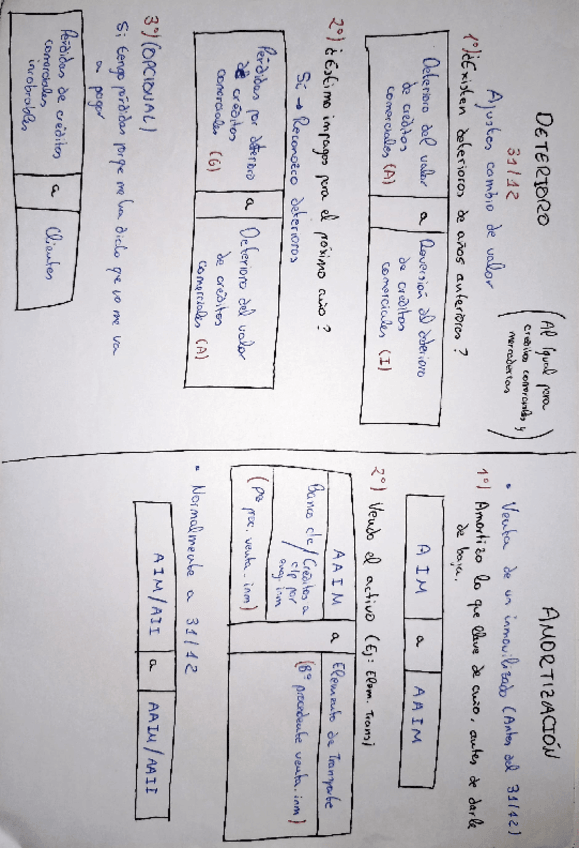 DETERIORO
31/12
(Al igual para
créditos comerciales y
mercaderías)
Ajustes cambio de valor
1º) ¿Existen deterioros de años anteriores?
Deterioro del valor
de créditos
comerciales (A)
a
Reversión del deterioro
de créditos
comerciales (I)
2º) ¿Estimo impagos para el próximo año?
Sí → Reconozco deterioros
Pérdidas por deterioro
de créditos
comerciales (G)
a
Deterioro del valor
de créditos
comerciales (A)
3º) (OPCIONAL)
Si tengo pérdidas porque me ha dicho que no me va
a pagar
Pérdidas de créditos
comerciales
incobrables
a
Clientes
AMORTIZACIÓN
• Venta de un inmovilizado (Antes del 31/12)
1º) Amortizo lo que lleve de año, antes de darle
de baja.
AIM
a
AAIM
2º) Vendo el activo (Ej: Elem. Trans)
AAIM
Banco cte/Créditos a
c/p por
enaj. inm
(Pº proc. venta. inm)
a
Elemento de Transporte
(Bº procedente venta. inm)
• Normalmente a 31/12
AIM/AII
a
AAIM/AAII